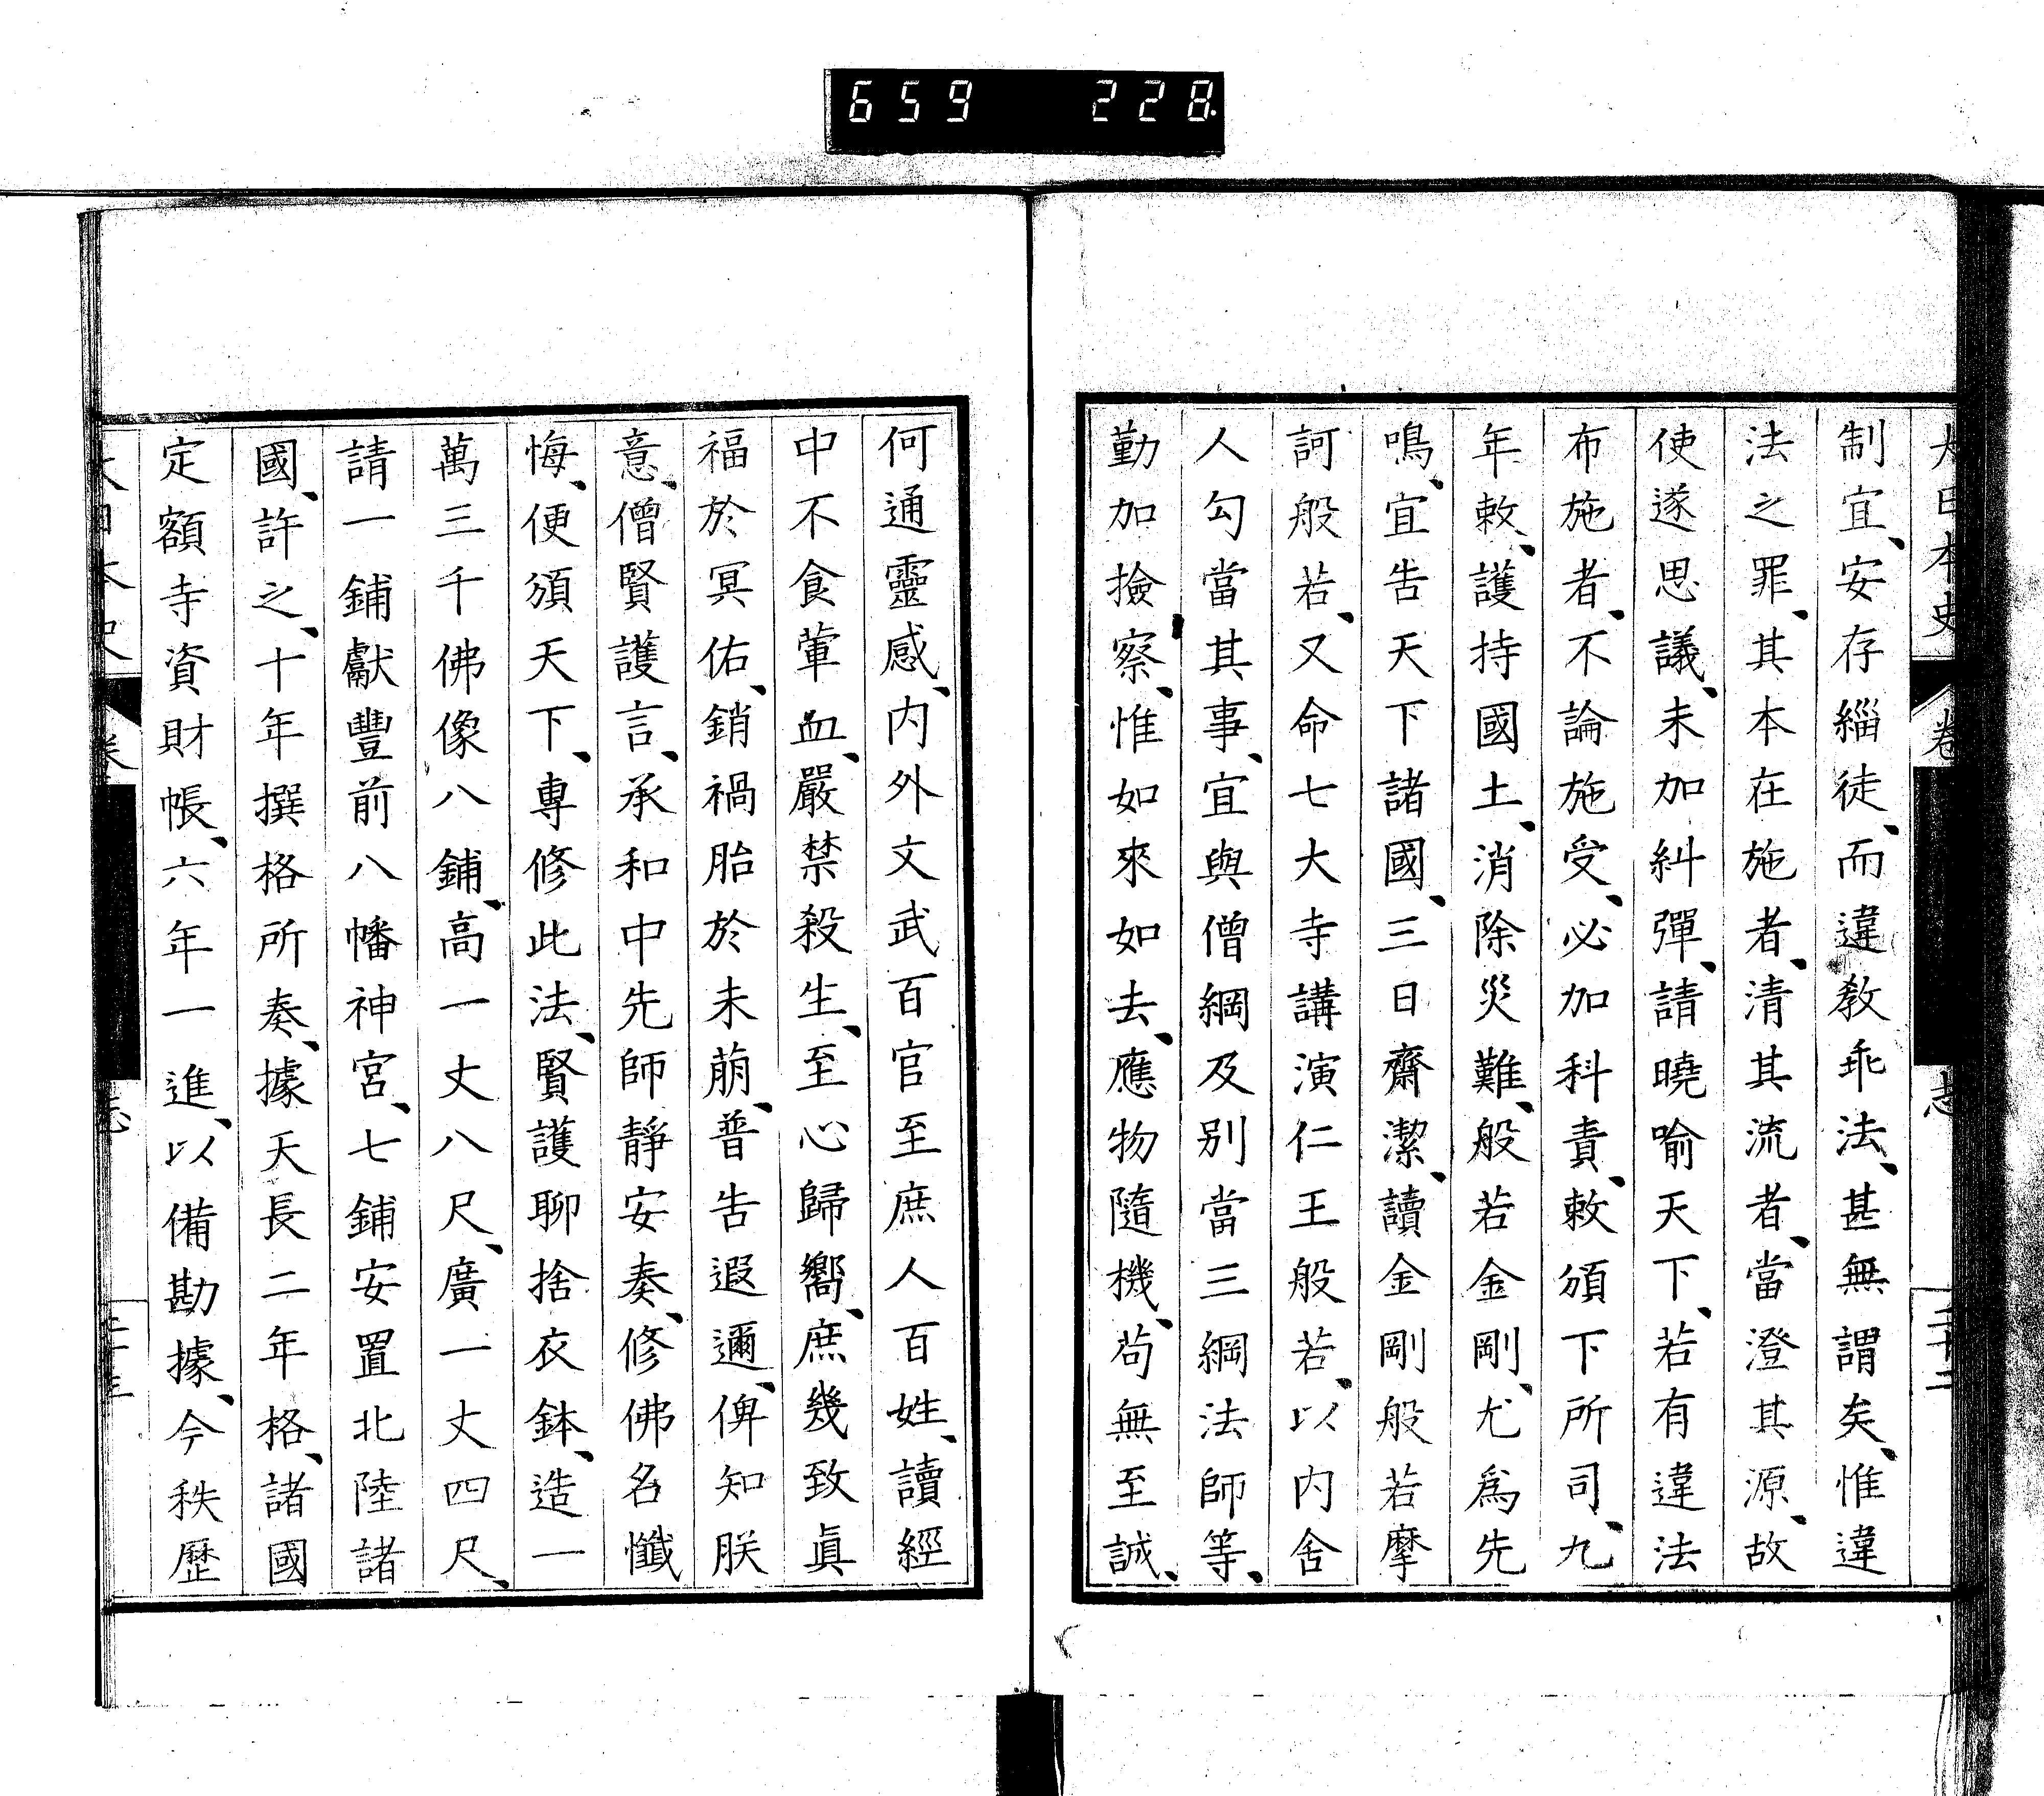 659 228
大日本史 卷 志
制宜、安存緇徒、而違教乖法、甚無謂矣、惟違
法之罪、其本在施者、清其流者、當澄其源、故
使遂思議、未加糾彈、請曉喻天下、若有違法
布施者、不論施受、必加科責、敕頒下所司、九
年敕、護持國土、消除災難、般若金剛、尤爲先
鳴、宜告天下諸國、三日齋潔、讀金剛般若摩
訶般若、又命七大寺講演仁王般若、以内舍
人勾當其事、宜與僧綱及別當三綱法師等、
勤加撿察、惟如來如去、應物隨機、苟無至誠、
何通靈感、内外文武百官至庶人百姓、讀經
中不食葷血、嚴禁殺生、至心歸嚮、庶幾致眞
福於冥佑、銷禍胎於未萠、普告遐邇、俾知朕
意、僧賢護言、承和中先師靜安奏、修佛名懺
悔、便頒天下、專修此法、賢護聊捨衣鉢、造一
萬三千佛像八鋪、高一丈八尺、廣一丈四尺、
請一鋪獻豐前八幡神宮、七鋪安置北陸諸
國、許之、十年撰格所奏、據天長二年格、諸國
定額寺資財帳、六年一進、以備勘據、今秩歷